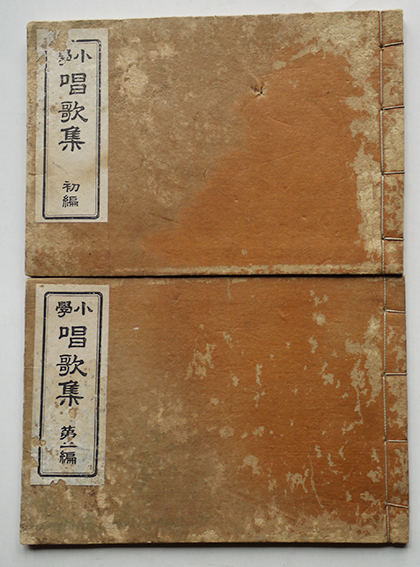 小學
唱歌集
初編
小學
唱歌集
第二編